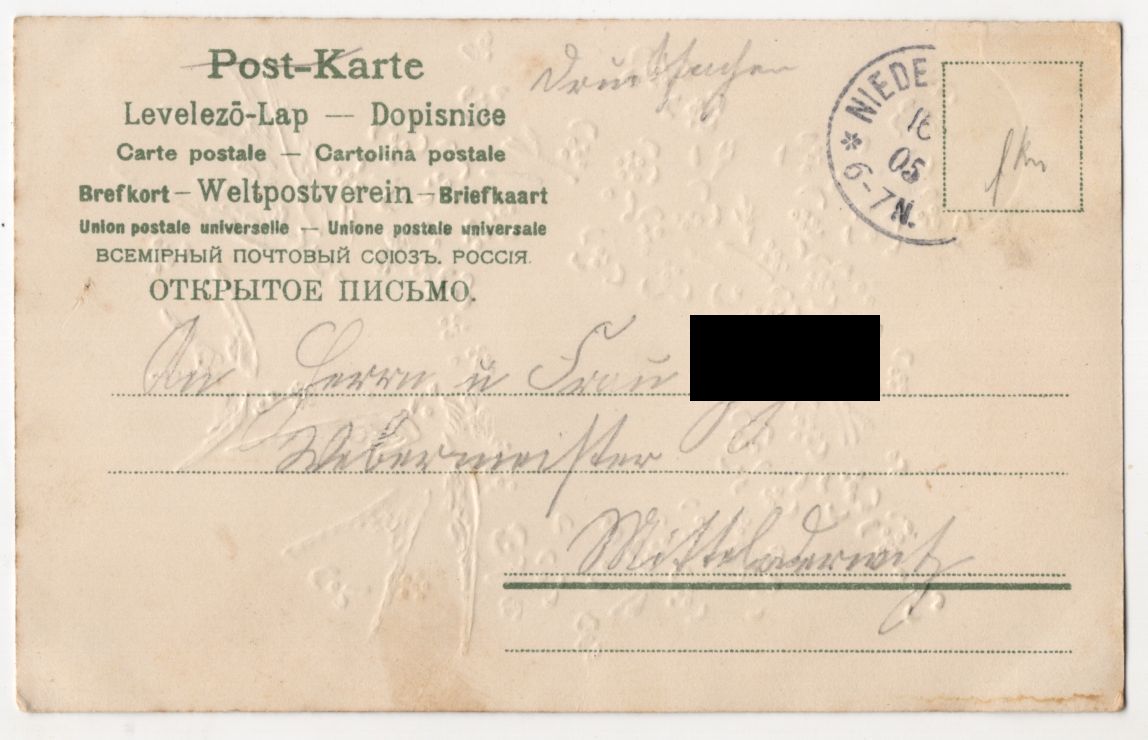 Post-Karte
Drucksachen
Levelező-Lap — Dopisnice
Carte postale — Cartolina postale
Brefkort – Weltpostverein – Briefkaart
Union postale universelle — Unione postale universale
ВСЕМІРНЫЙ ПОЧТОВЫЙ СОЮЗЪ. РОССІЯ.
ОТКРЫТОЕ ПИСЬМО.
* NIEDE
16
05
6-7N.
An Herrn u Frau
Webermeister
Mitteloderwitz